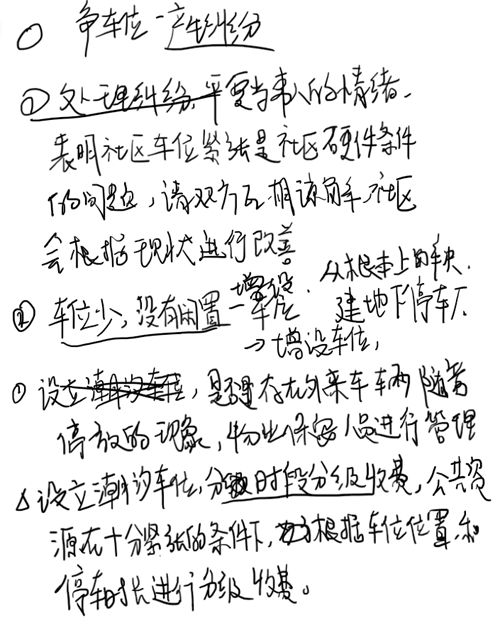 ○ 争车位-产生纠纷
① 处理纠纷,平复当事人的情绪.
表明社区车位紧张是社区硬件条件
的问题,请双方互相谅解,社区
会根据现状进行改善。
② 车位少,没有闲置-车位 增设. 从根本上解决.
建地下停车厂
→增设车位,
① 设立潮汐车位,是否存在外来车车辆随意
停放的现象,物业保安人员进行管理
△设立潮汐车位,分时段分级收费,公共资
源在十分紧张的条件下,根据车位位置和
停车时长进行分级收费。